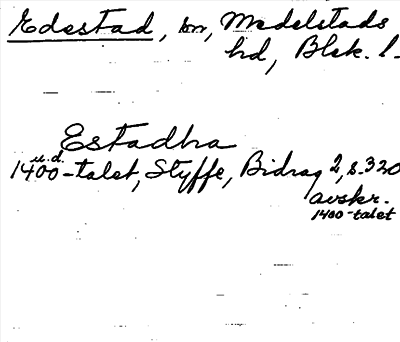 Edestad, sn, Medelstads
hd, Blek. l.
Estadha
u.d.
1400-talet, Styffe, Bidrag 2, s. 320
avskr.
1400-talet